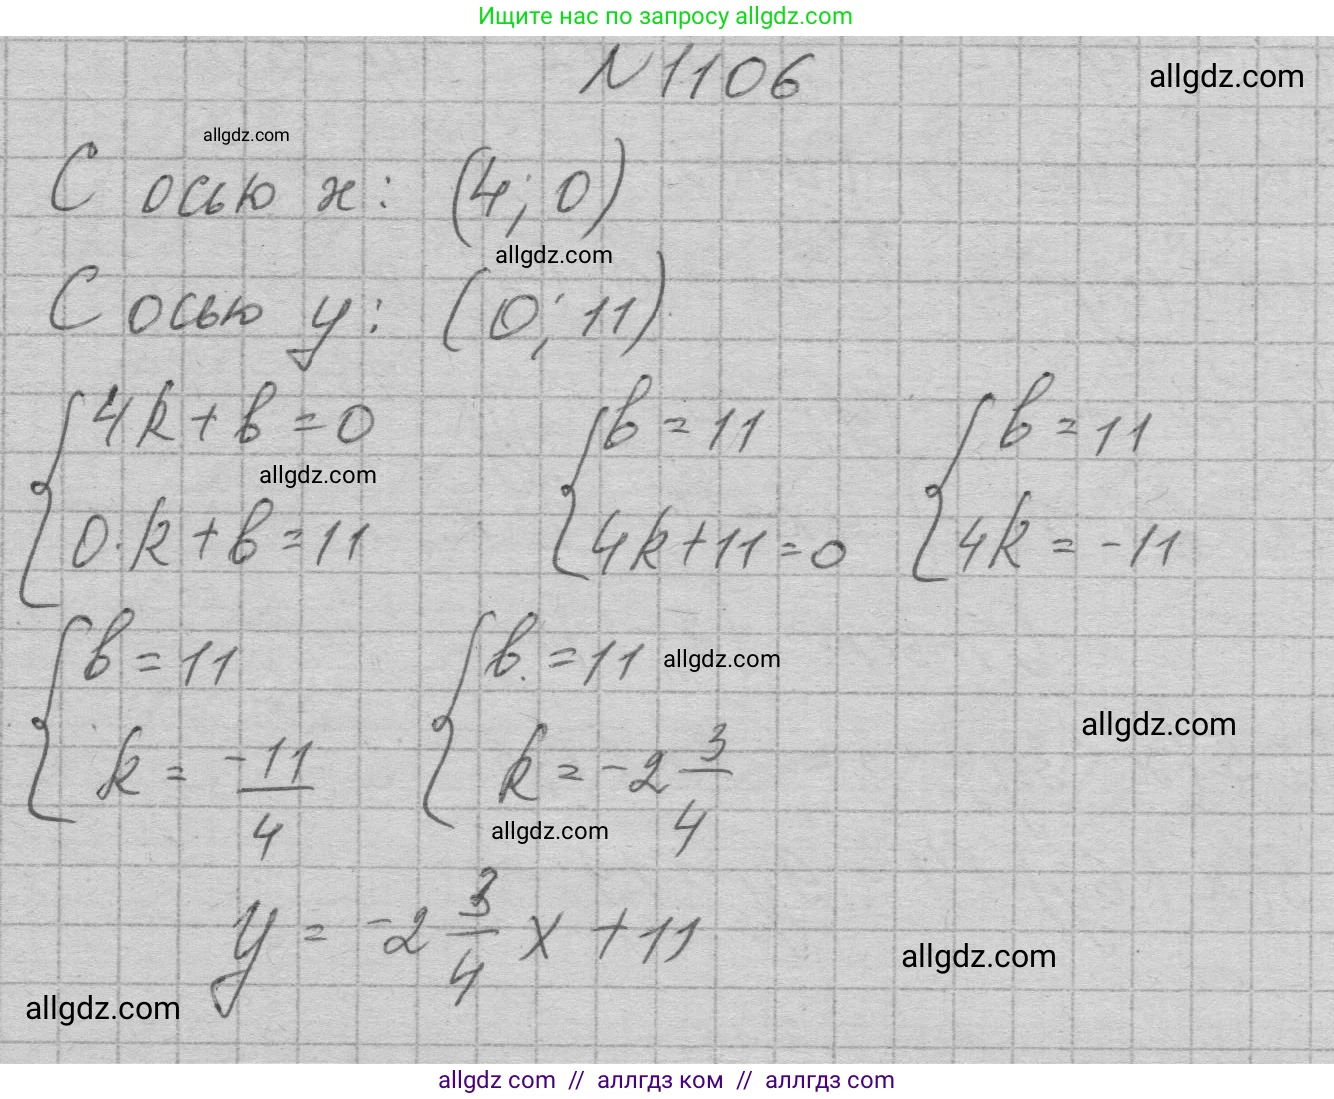 Ищите нас по запросу allgdz.com
N1106
allgdz.com
allgdz.com
С осью x: (4; 0)
allgdz.com
С осью y: (0; 11)
{4k+b=0 {b=11 {b=11
allgdz.com
0·k+b=11 4k+11=0 4k=-11
{b=11 {b.=11 allgdz.com
allgdz.com
k=-11/4 k=-2 3/4
allgdz.com
y=-2 3/4 x+11
allgdz.com
allgdz.com
allgdz com // аллгдз ком // allgdz com